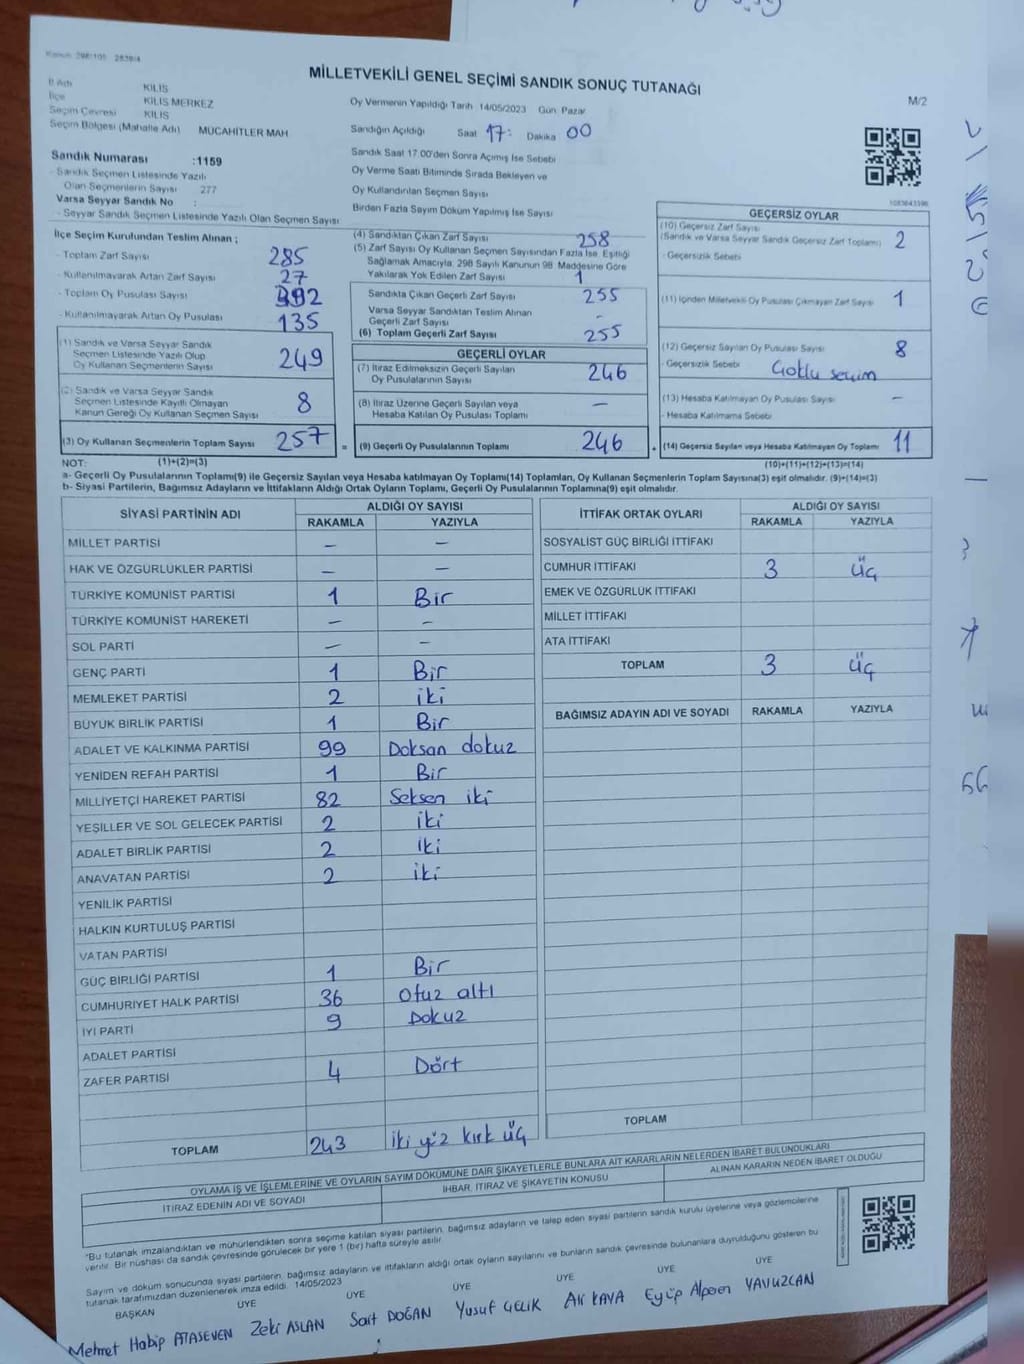 Kanun: 298/105 2839/4
MİLLETVEKİLİ GENEL SEÇİMİ SANDIK SONUÇ TUTANAĞI
M/2
İl Adı KİLİS
İlçe KİLİS MERKEZ
Seçim Çevresi KİLİS
Seçim Bölgesi (Mahalle Adı) MÜCAHİTLER MAH.
Sandık Numarası :1159
- Sandık Seçmen Listesinde Yazılı
Olan Seçmenlerin Sayısı 277
Varsa Seyyar Sandık No :
- Seyyar Sandık Seçmen Listesinde Yazılı Olan Seçmen Sayısı
Oy Vermenin Yapıldığı Tarih 14/05/2023 Gün: Pazar
Sandığın Açıldığı Saat 17: Dakika 00
Sandık Saat 17.00'den Sonra Açılmış İse Sebebi
Oy Verme Saati Bitiminde Sırada Bekleyen ve
Oy Kullandırılan Seçmen Sayısı
Birden Fazla Sayım Döküm Yapılmış İse Sayısı
İlçe Seçim Kurulundan Teslim Alınan ;
- Toplam Zarf Sayısı 285
- Kullanılmayarak Artan Zarf Sayısı 27
- Toplam Oy Pusulası Sayısı 392
- Kullanılmayarak Artan Oy Pusulası 135
(1) Sandık ve Varsa Seyyar Sandık
Seçmen Listesinde Yazılı Olup
Oy Kullanan Seçmenlerin Sayısı 249
(2) Sandık ve Varsa Seyyar Sandık
Seçmen Listesinde Kayıtlı Olmayan
Kanun Gereği Oy Kullanan Seçmen Sayısı 8
(3) Oy Kullanan Seçmenlerin Toplam Sayısı 257
(1)+(2)=(3)
(4) Sandıktan Çıkan Zarf Sayısı 258
(5) Zarf Sayısı Oy Kullanan Seçmen Sayısından Fazla İse, Eşitliği
Sağlamak Amacıyla, 298 Sayılı Kanunun 98. Maddesine Göre
Yakılarak Yok Edilen Zarf Sayısı 1
Sandıkta Çıkan Geçerli Zarf Sayısı 255
Varsa Seyyar Sandıktan Teslim Alınan
Geçerli Zarf Sayısı -
(6) Toplam Geçerli Zarf Sayısı 255
GEÇERLİ OYLAR
(7) İtiraz Edilmeksizin Geçerli Sayılan
Oy Pusulalarının Sayısı 246
(8) İtiraz Üzerine Geçerli Sayılan veya
Hesaba Katılan Oy Pusulası Toplamı —
= (9) Geçerli Oy Pusulalarının Toplamı 246 +
GEÇERSİZ OYLAR
(10) Geçersiz Zarf Sayısı
(Sandık ve Varsa Seyyar Sandık Geçersiz Zarf Toplamı) 2
- Geçersizlik Sebebi
(11) İçinden Milletvekili Oy Pusulası Çıkmayan Zarf Sayısı 1
(12) Geçersiz Sayılan Oy Pusulası Sayısı 8
- Geçersizlik Sebebi Çoklu seçim
(13) Hesaba Katılmayan Oy Pusulası Sayısı -
- Hesaba Katılmama Sebebi
(14) Geçersiz Sayılan veya Hesaba Katılmayan Oy Toplamı 11
(10)+(11)+(12)+(13)=(14)
NOT:
a- Geçerli Oy Pusulalarının Toplamı(9) ile Geçersiz Sayılan veya Hesaba katılmayan Oy Toplamı(14) Toplamları, Oy Kullanan Seçmenlerin Toplam Sayısına(3) eşit olmalıdır. (9)+(14)=(3)
b- Siyasi Partilerin, Bağımsız Adayların ve İttifakların Aldığı Ortak Oyların Toplamı, Geçerli Oy Pusulalarının Toplamına(9) eşit olmalıdır.
SİYASİ PARTİNİN ADI ALDIĞI OY SAYISI
RAKAMLA YAZIYLA
MİLLET PARTİSİ — —
HAK VE ÖZGÜRLÜKLER PARTİSİ — —
TÜRKİYE KOMÜNİST PARTİSİ 1 Bir
TÜRKİYE KOMÜNİST HAREKETİ — -
SOL PARTİ — -
GENÇ PARTİ 1 Bir
MEMLEKET PARTİSİ 2 iki
BÜYÜK BİRLİK PARTİSİ 1 Bir
ADALET VE KALKINMA PARTİSİ 99 Doksan dokuz
YENİDEN REFAH PARTİSİ 1 Bir
MİLLİYETÇİ HAREKET PARTİSİ 82 Seksen iki
YEŞİLLER VE SOL GELECEK PARTİSİ 2 iki
ADALET BİRLİK PARTİSİ 2 iki
ANAVATAN PARTİSİ 2 iki
YENİLİK PARTİSİ
HALKIN KURTULUŞ PARTİSİ
VATAN PARTİSİ
GÜÇ BİRLİĞİ PARTİSİ 1 Bir
CUMHURİYET HALK PARTİSİ 36 Otuz altı
İYİ PARTİ 9 Dokuz
ADALET PARTİSİ
ZAFER PARTİSİ 4 Dört
TOPLAM 243 iki yüz kırk üç
İTTİFAK ORTAK OYLARI ALDIĞI OY SAYISI
RAKAMLA YAZIYLA
SOSYALİST GÜÇ BİRLİĞİ İTTİFAKI
CUMHUR İTTİFAKI 3 üç
EMEK VE ÖZGÜRLÜK İTTİFAKI
MİLLET İTTİFAKI
ATA İTTİFAKI
TOPLAM 3 üç
BAĞIMSIZ ADAYIN ADI VE SOYADI RAKAMLA YAZIYLA
TOPLAM
OYLAMA İŞ VE İŞLEMLERİNE VE OYLARIN SAYIM DÖKÜMÜNE DAİR ŞİKAYETLERLE BUNLARA AİT KARARLARIN NELERDEN İBARET BULUNDUKLARI
İTİRAZ EDENİN ADI VE SOYADI İHBAR, İTİRAZ VE ŞİKAYETİN KONUSU ALINAN KARARIN NEDEN İBARET OLDUĞU
"Bu tutanak imzalandıktan ve mühürlendikten sonra seçime katılan siyasi partilerin, bağımsız adayların ve talep eden siyasi partilerin sandık kurulu üyelerine veya gözlemcilerine
verilir. Bir nüshası da sandık çevresinde görülecek bir yere 1 (bir) hafta süreyle asılır.
Sayım ve döküm sonucunda siyasi partilerin, bağımsız adayların ve ittifakların aldığı ortak oyların sayılarını ve bunların sandık çevresinde bulunanlara duyurulduğunu gösteren bu
tutanak tarafımızdan düzenlenerek imza edildi. 14/05/2023
BAŞKAN ÜYE ÜYE ÜYE ÜYE ÜYE ÜYE
Mehmet Habip ATASEVEN Zeki ASLAN Sait DOĞAN Yusuf ÇELİK Ali KAYA Eyüp Alperen YAVUZCAN